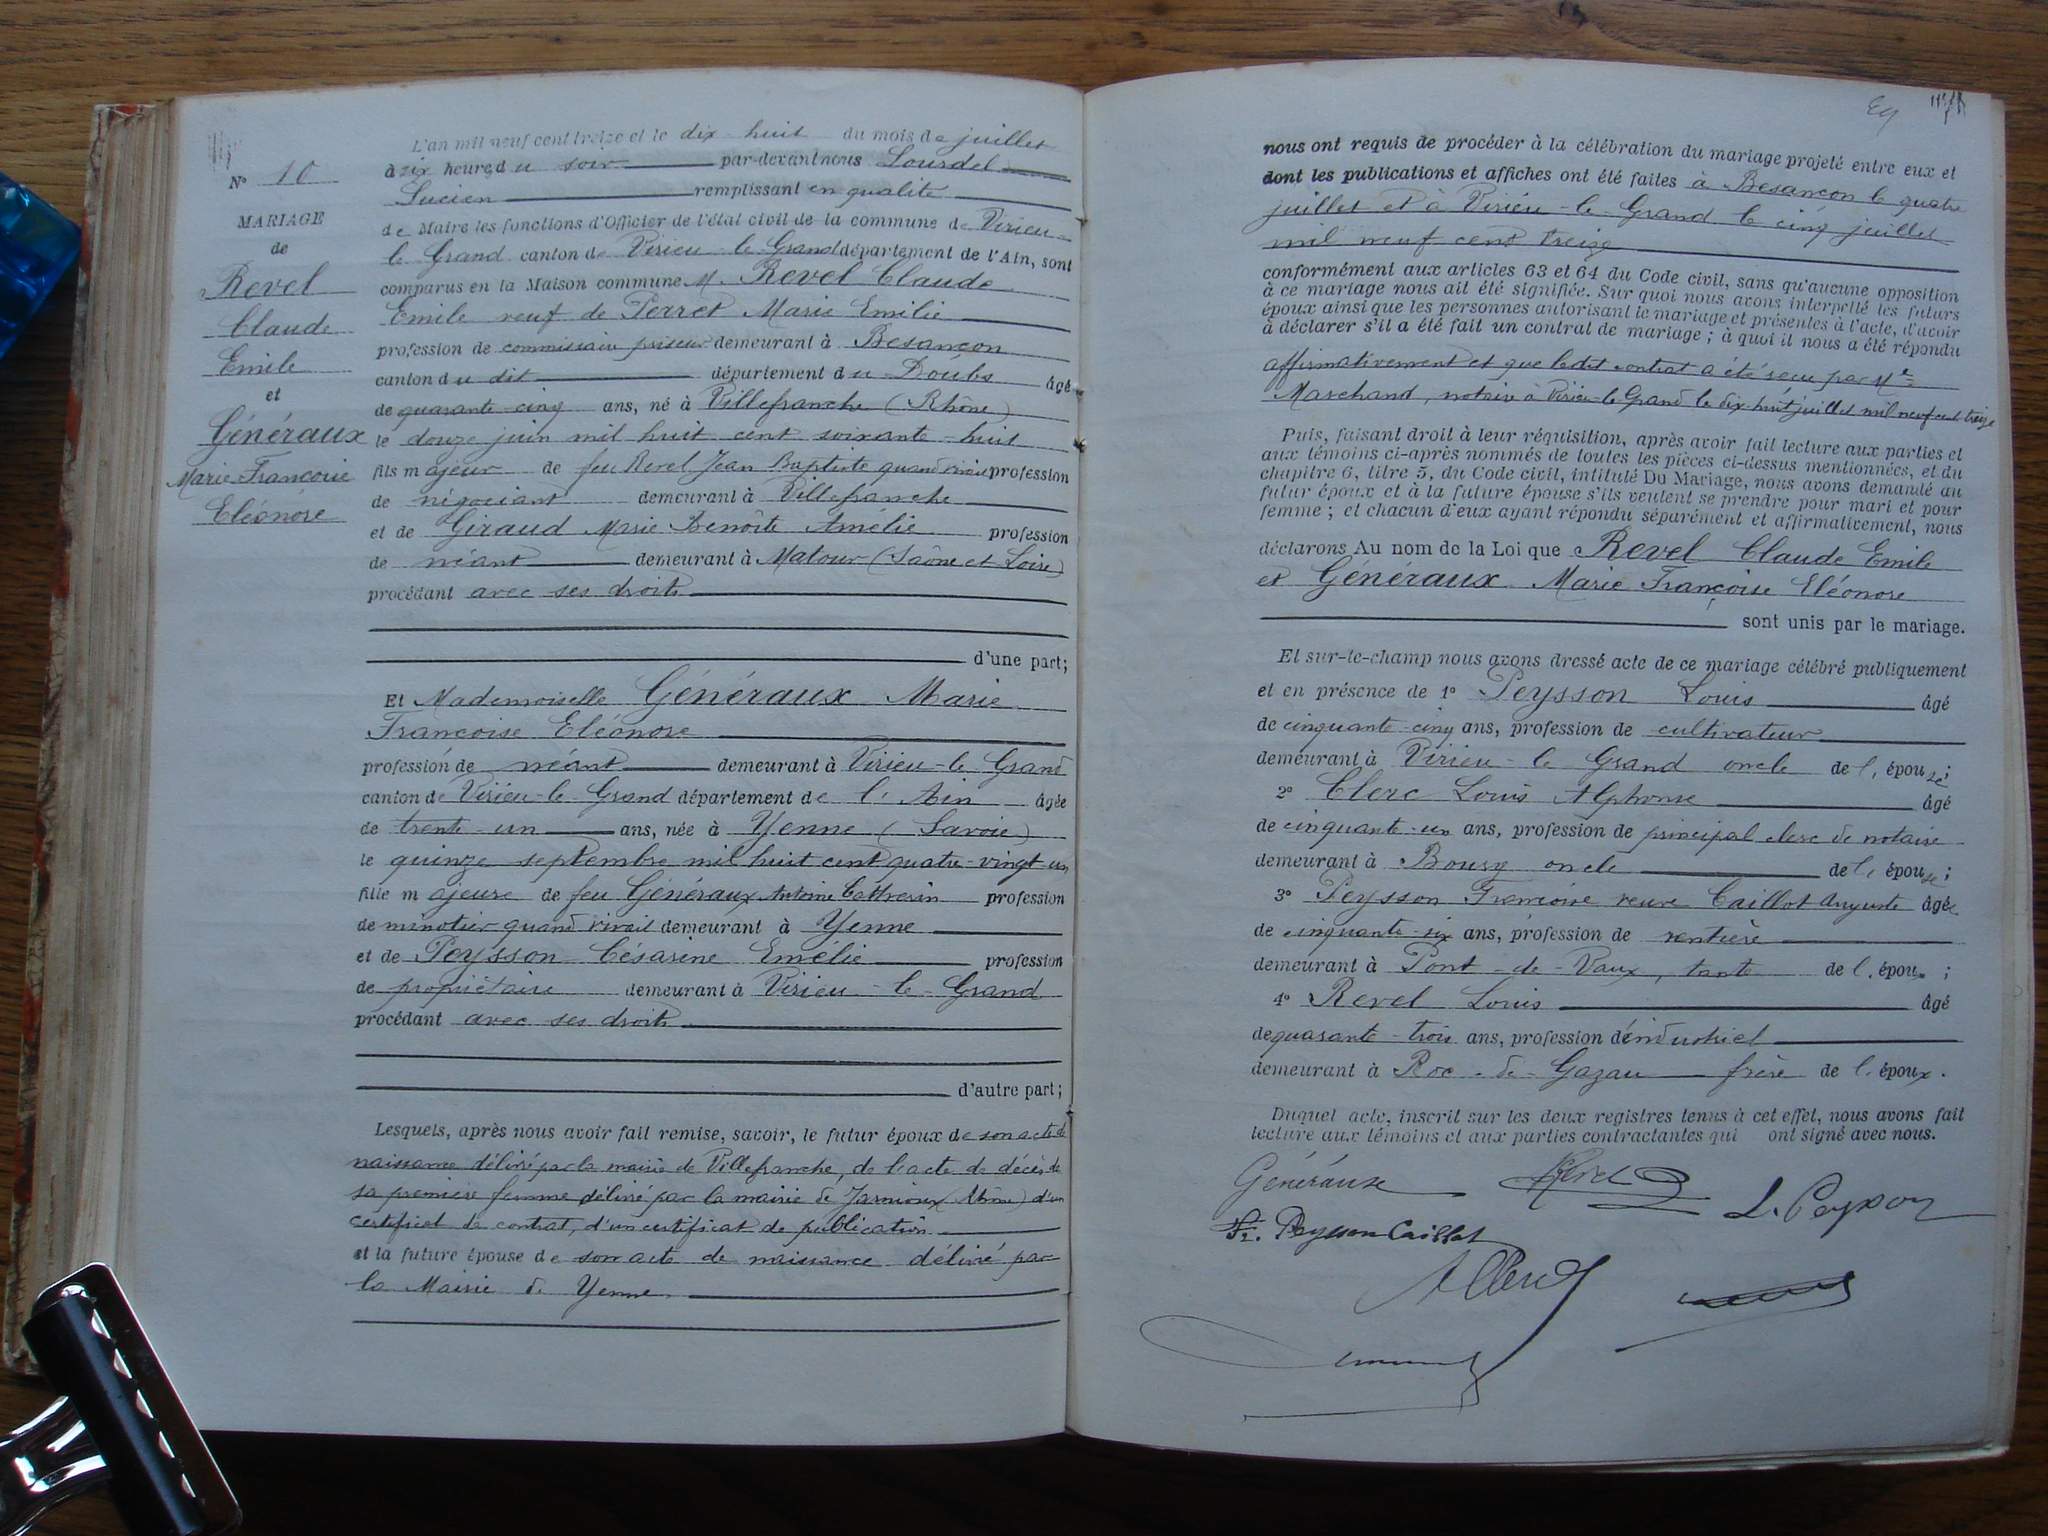 N° 10
MARIAGE
de
Revel
Claude
Emile
et
Généraux
Marie Francoise
Eléonore
L'an mil neuf cent treize et le dix-huit du mois de juillet
à six heures du soir par-devant nous Lourdel
Lucien remplissant en qualité
de Maire les fonctions d'Officier de l'état civil de la commune de Virieu-
le Grand canton de Virieu-le Grand département de l'Ain, sont
comparus en la Maison commune M. Revel Claude
Emile veuf de Perret Marie Emilie
profession de commissaire priseur demeurant à Besançon
canton du dit département du Doubs âgé
de quarante-cinq ans, né à Villefranche (Rhône)
le douze juin mil huit cent soixante-huit
fils majeur de feu Revel Jean Baptiste quand vivait profession
de négociant demeurant à Villefranche
et de Giraud Marie Benoîte Amélie profession
de néant demeurant à Matour (Saône et Loire)
procédant avec ses droits
d'une part;
Et Mademoiselle Généraux Marie
Francoise Eléonore
profession de néant demeurant à Virieu-le Grand
canton de Virieu-le Grand département de l'Ain âgée
de trente-un ans, née à Yenne (Savoie)
le quinze septembre mil huit cent quatre-vingt-un
fille majeure de feu Généraux Antoine Cathérin profession
de minotier quand vivait demeurant à Yenne
et de Peysson Césarine Emélie profession
de propriétaire demeurant à Virieu-le-Grand
procédant avec ses droits
d'autre part;
Lesquels, après nous avoir fait remise, savoir, le futur époux de son acte de
naissance délivré par la mairie de Villefranche, de l'acte de décès de
sa première femme délivré par la mairie de Jarnioux (Rhône) d'un
certificat de contrat, d'un certificat de publication
et la future épouse de son acte de naissance délivré par
la Mairie de Yenne
nous ont requis de procéder à la célébration du mariage projeté entre eux et
dont les publications et affiches ont été faites à Besançon le quatre
juillet et à Virieu-le-Grand le cinq juillet
mil neuf cent treize
conformément aux articles 63 et 64 du Code civil, sans qu'aucune opposition
à ce mariage nous ait été signifiée. Sur quoi nous avons interpellé les futurs
époux ainsi que les personnes autorisant le mariage et présentes à l'acte, d'avoir
à déclarer s'il a été fait un contrat de mariage; à quoi il nous a été répondu
affirmativement et que ledit contrat a été reçu par Me
Marchand, notaire à Virieu-le-Grand le dix-huit juillet mil neuf cent treize
Puis, faisant droit à leur réquisition, après avoir fait lecture aux parties et
aux témoins ci-après nommés de toutes les pièces ci-dessus mentionnées, et du
chapitre 6, titre 5, du Code civil, intitulé Du Mariage, nous avons demandé au
futur époux et à la future épouse s'ils veulent se prendre pour mari et pour
femme; et chacun d'eux ayant répondu séparément et affirmativement, nous
déclarons Au nom de la Loi que Revel Claude Emile
et Généraux Marie Françoise Eléonore
sont unis par le mariage.
Et sur-le-champ nous avons dressé acte de ce mariage célébré publiquement
et en présence de 1° Peysson Louis âgé
de cinquante-cinq ans, profession de cultivateur
demeurant à Virieu-le Grand oncle de l'épouse;
2° Clerc Louis Alphonse âgé
de cinquante-un ans, profession de principal clerc de notaire
demeurant à Bourg oncle de l'épouse;
3° Peysson Francoise veuve Caillot Auguste âgée
de cinquante-six ans, profession de rentière
demeurant à Pont-de-Vaux, tante de l'épouse;
4° Revel Louis âgé
de quarante-trois ans, profession d'industriel
demeurant à Roc-de-Gazau frère de l'époux.
Duquel acte, inscrit sur les deux registres tenus à cet effet, nous avons fait
lecture aux témoins et aux parties contractantes qui ont signé avec nous.
Généraux Revel L. Peysson
Fr. Peysson-Caillot
A Clerc